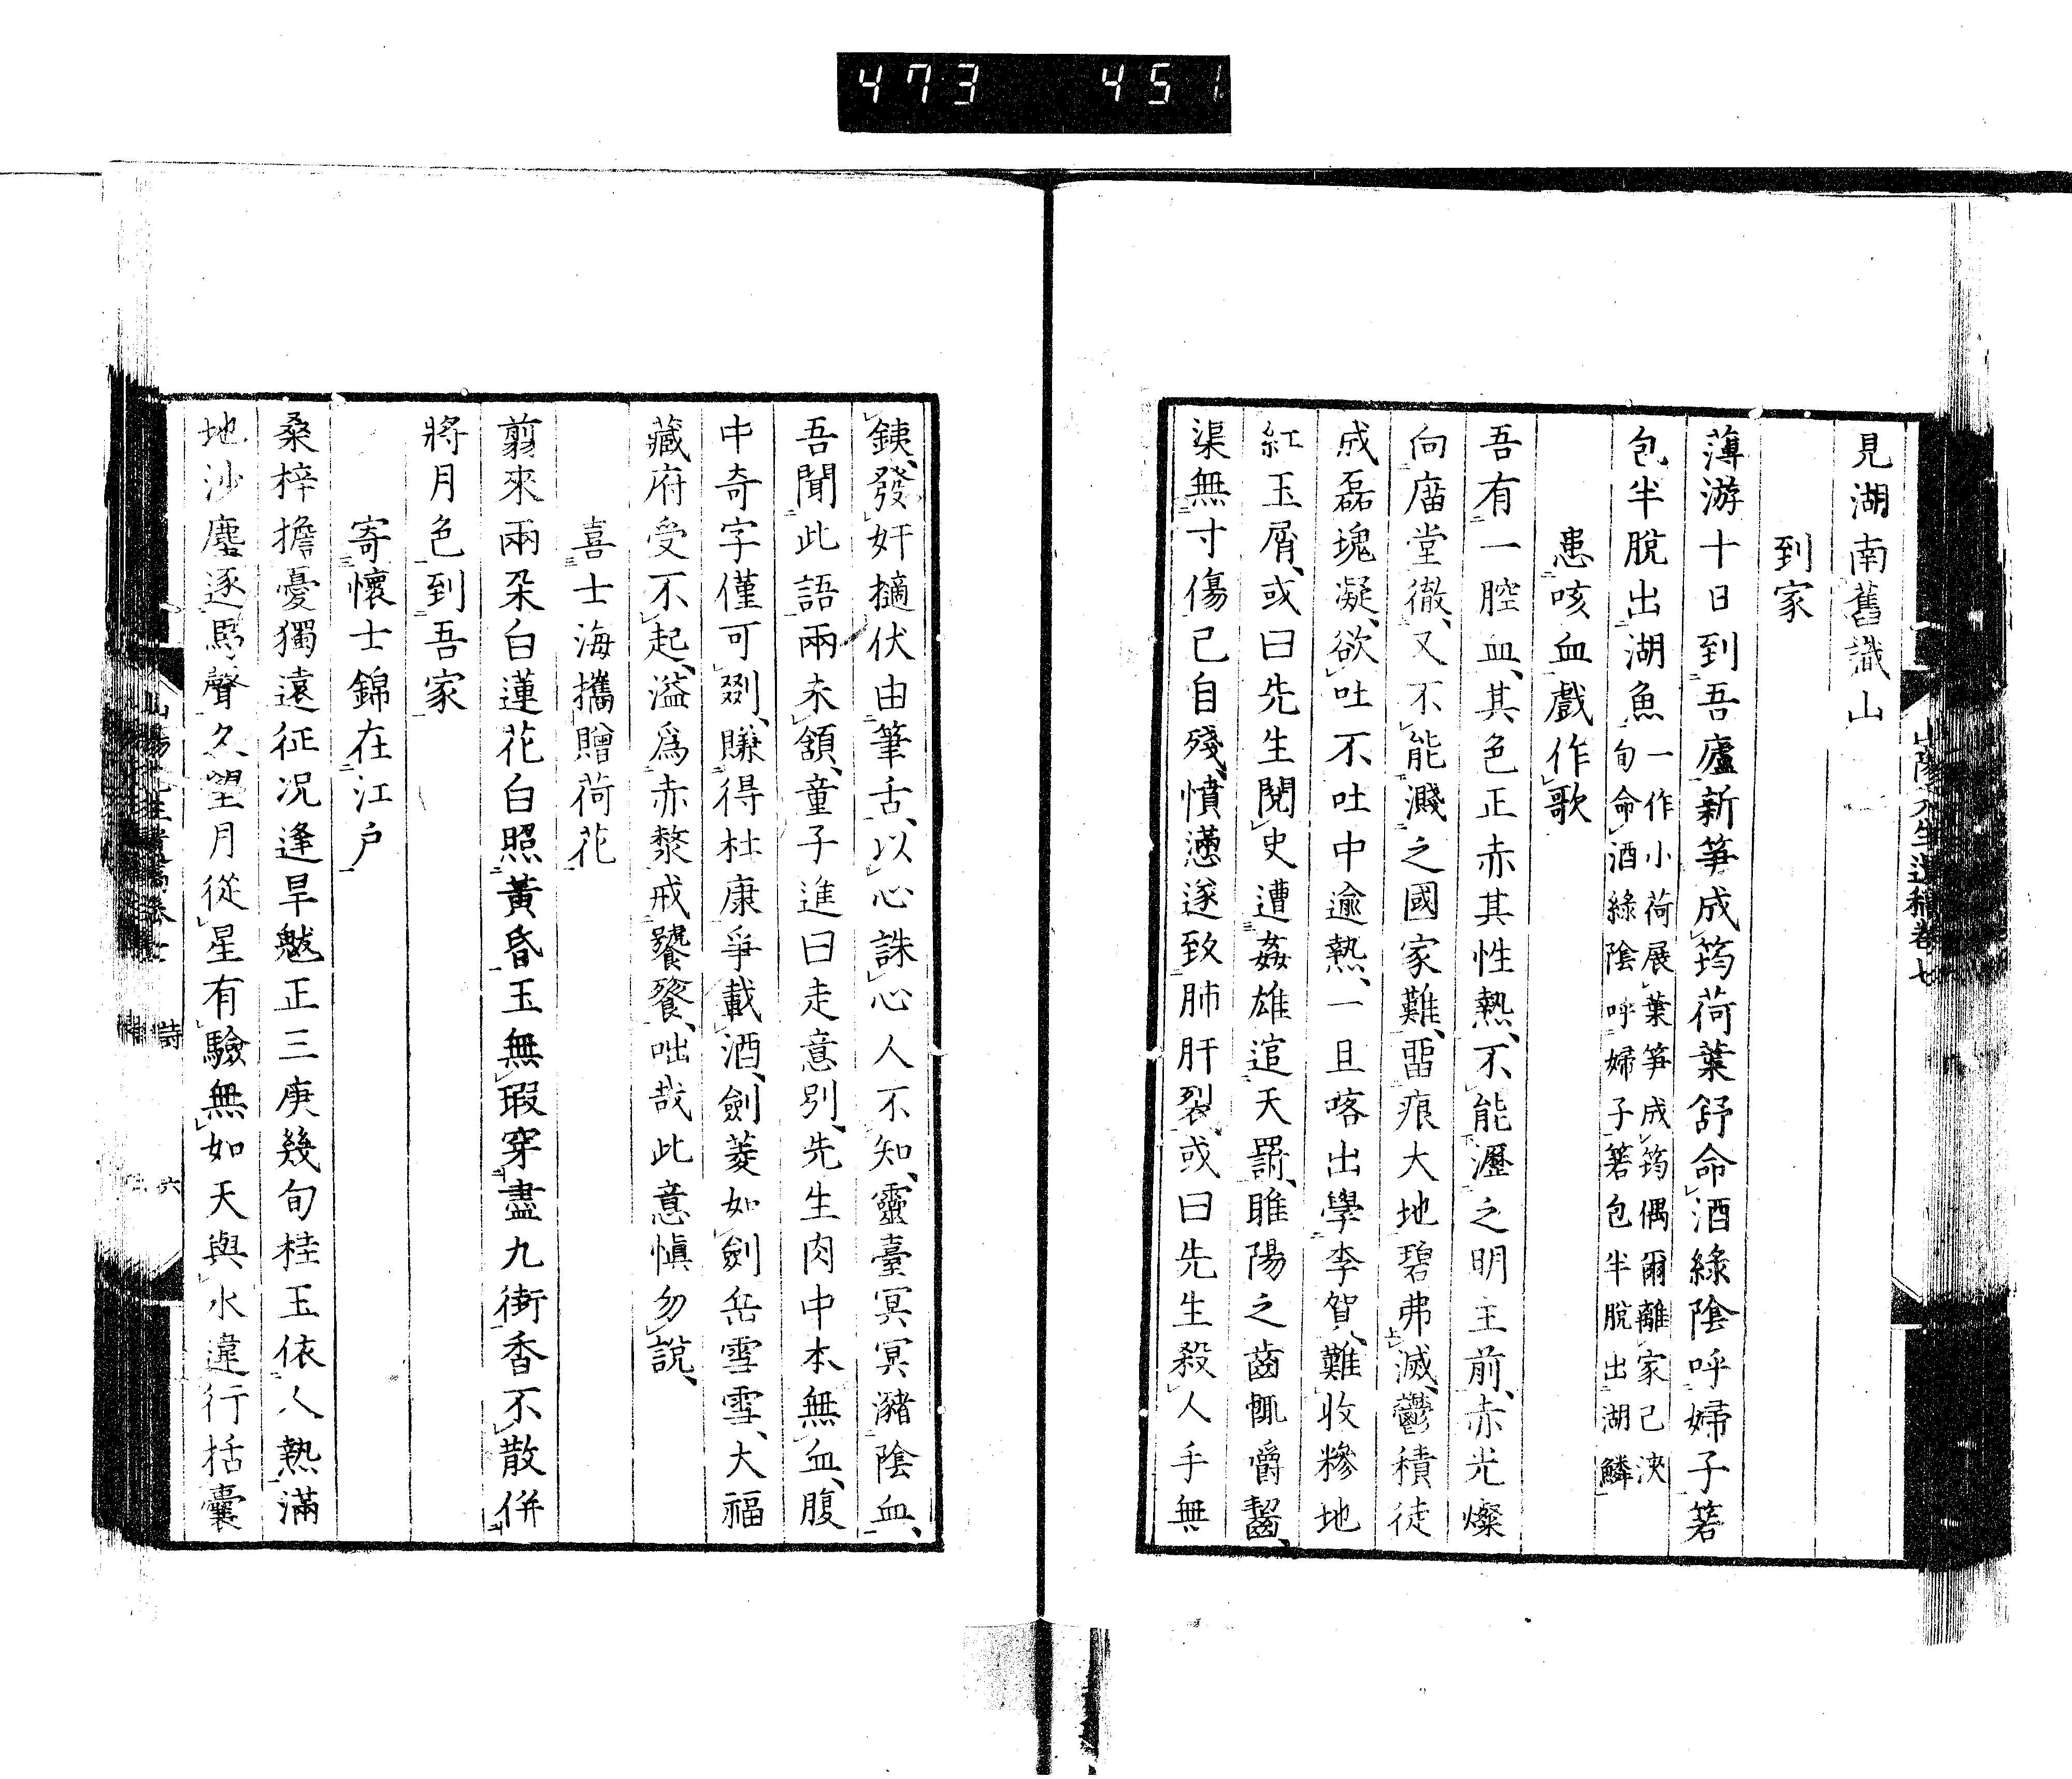 473 451
見湖南舊識山
到家
薄游十日到吾廬新笋成筠荷葉舒命酒綠陰呼婦子箬
包半脫出湖魚一作小荷展葉笋成筠偶爾離家已浹
旬命酒綠陰呼婦子箬包半脫出湖鱗
患咳血戲作歌
吾有一腔血其色正赤其性熱不能瀝之明主前赤光燦
向廟堂徹又不能濺之國家難留痕大地碧弗滅鬱積徒
成磊塊凝欲吐不吐中逾熱一旦喀出學李賀難收糝地
紅玉屑或曰先生閱史遭姦雄逭天罰睢陽之齒輒嚼齧
渠無寸傷己自殘憤懣遂致肺肝裂或曰先生殺人手無
山陽先生遺稿卷七
鋏發奸擿伏由筆舌以心誅心人不知靈臺冥冥瀦陰血
吾聞此語兩未頷童子進曰走意別先生肉中本無血腹
中奇字僅可剟賺得杜康爭載酒劍菱如劍岳雪雪大福
藏府受不起溢爲赤漦戒饕餮咄哉此意愼勿說
喜士海攜贈荷花
翦來兩朶白蓮花白照黃昏玉無瑕穿盡九街香不散併
將月色到吾家
寄懷士錦在江戶
桑梓擔憂獨遠征況逢旱魃正三庚幾旬桂玉依人熱滿
地沙塵逐馬聲久望月從星有驗無如天與水違行括囊
山陽先生遺稿卷七 詩 六